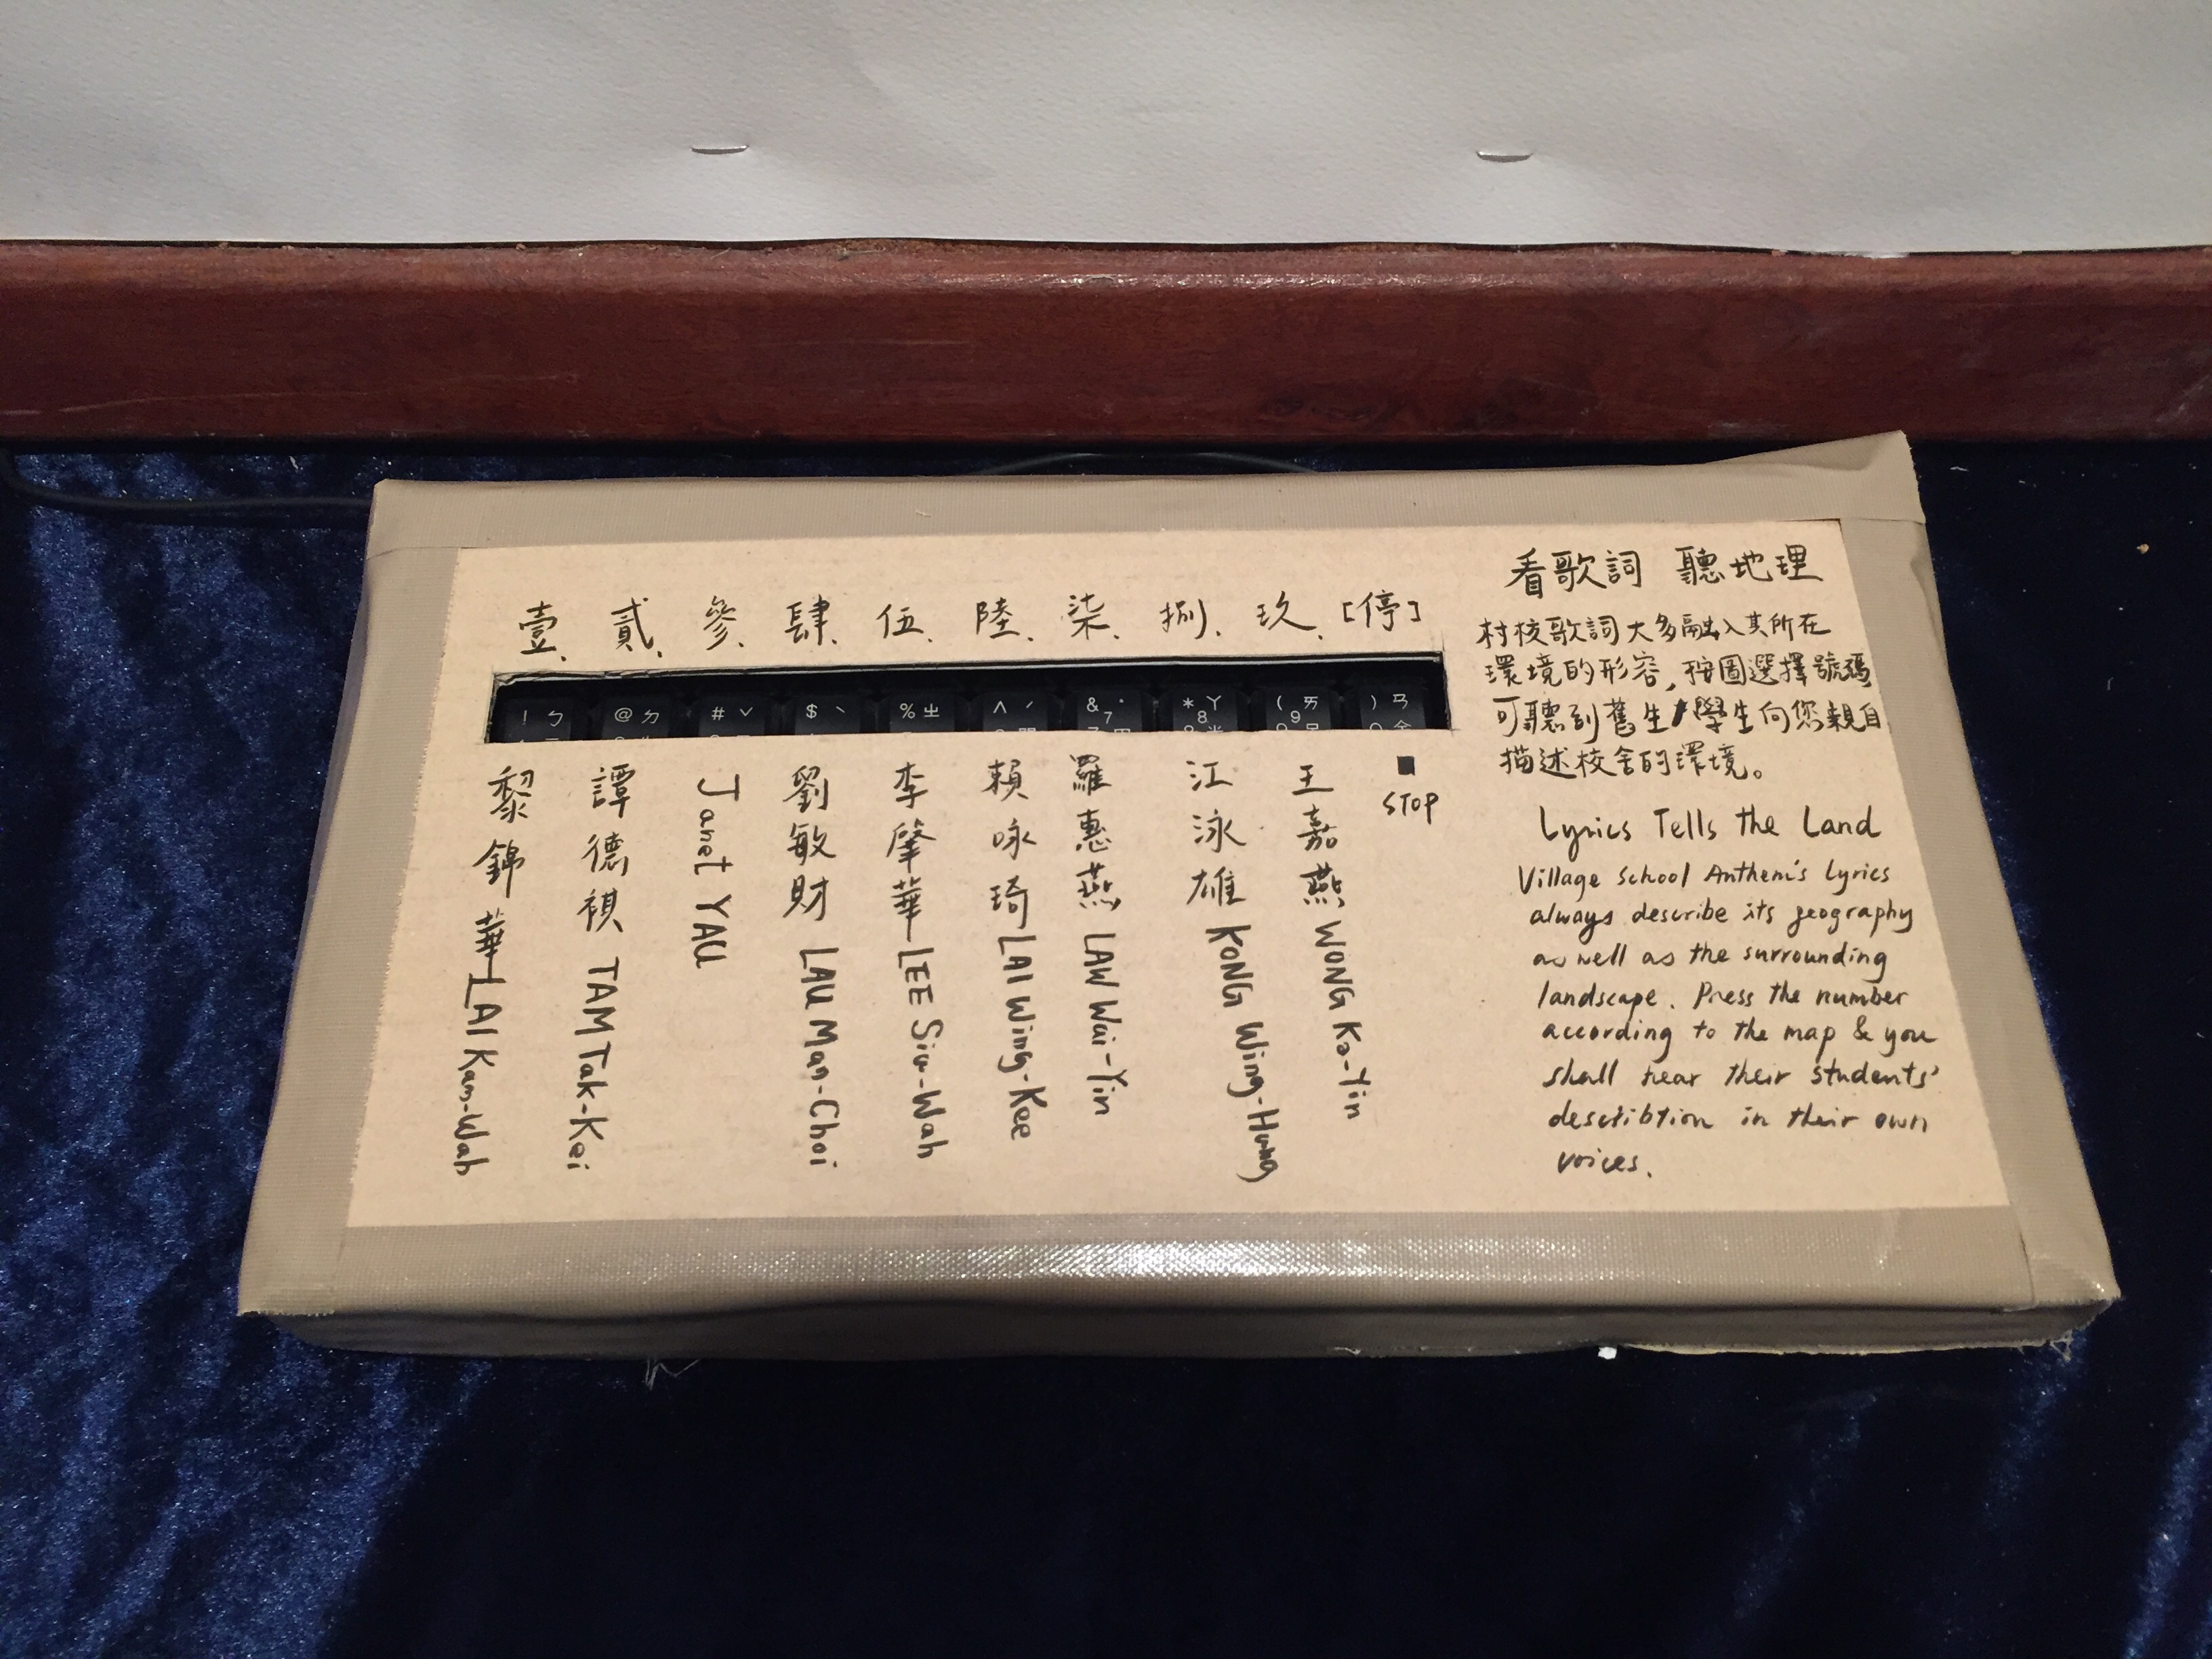 壹. 貳. 參. 肆. 伍. 陸. 柒. 捌. 玖. [停]
! ㄅ @ ㄉ # ˇ $ ˋ % ㄓ ^ ˊ & ˙ 7 * ㄚ 8 ( ㄞ 9 ) ㄢ
黎錦華 LAI Kam-Wah
譚德祺 TAM Tak-Kei
Janet YAU
劉敏財 LAU Man-Choi
李肇華 LEE Siu-Wah
賴咏琦 LAI Wing-Kee
羅惠燕 LAW Wai-Yin
江泳雄 KONG Wing-Hung
王嘉燕 WONG Ka-Yin
■
STOP
看歌詞 聽地理
村校歌詞大多融入其所在
環境的形容,按圖選擇號碼
可聽到舊生/學生向您親自
描述校舍的環境。
Lyrics Tells the Land
Village School Anthem's Lyrics
always describe its geography
as well as the surrounding
landscape. Press the number
according to the map & you
shall hear their students'
descibtion in their own
voices.